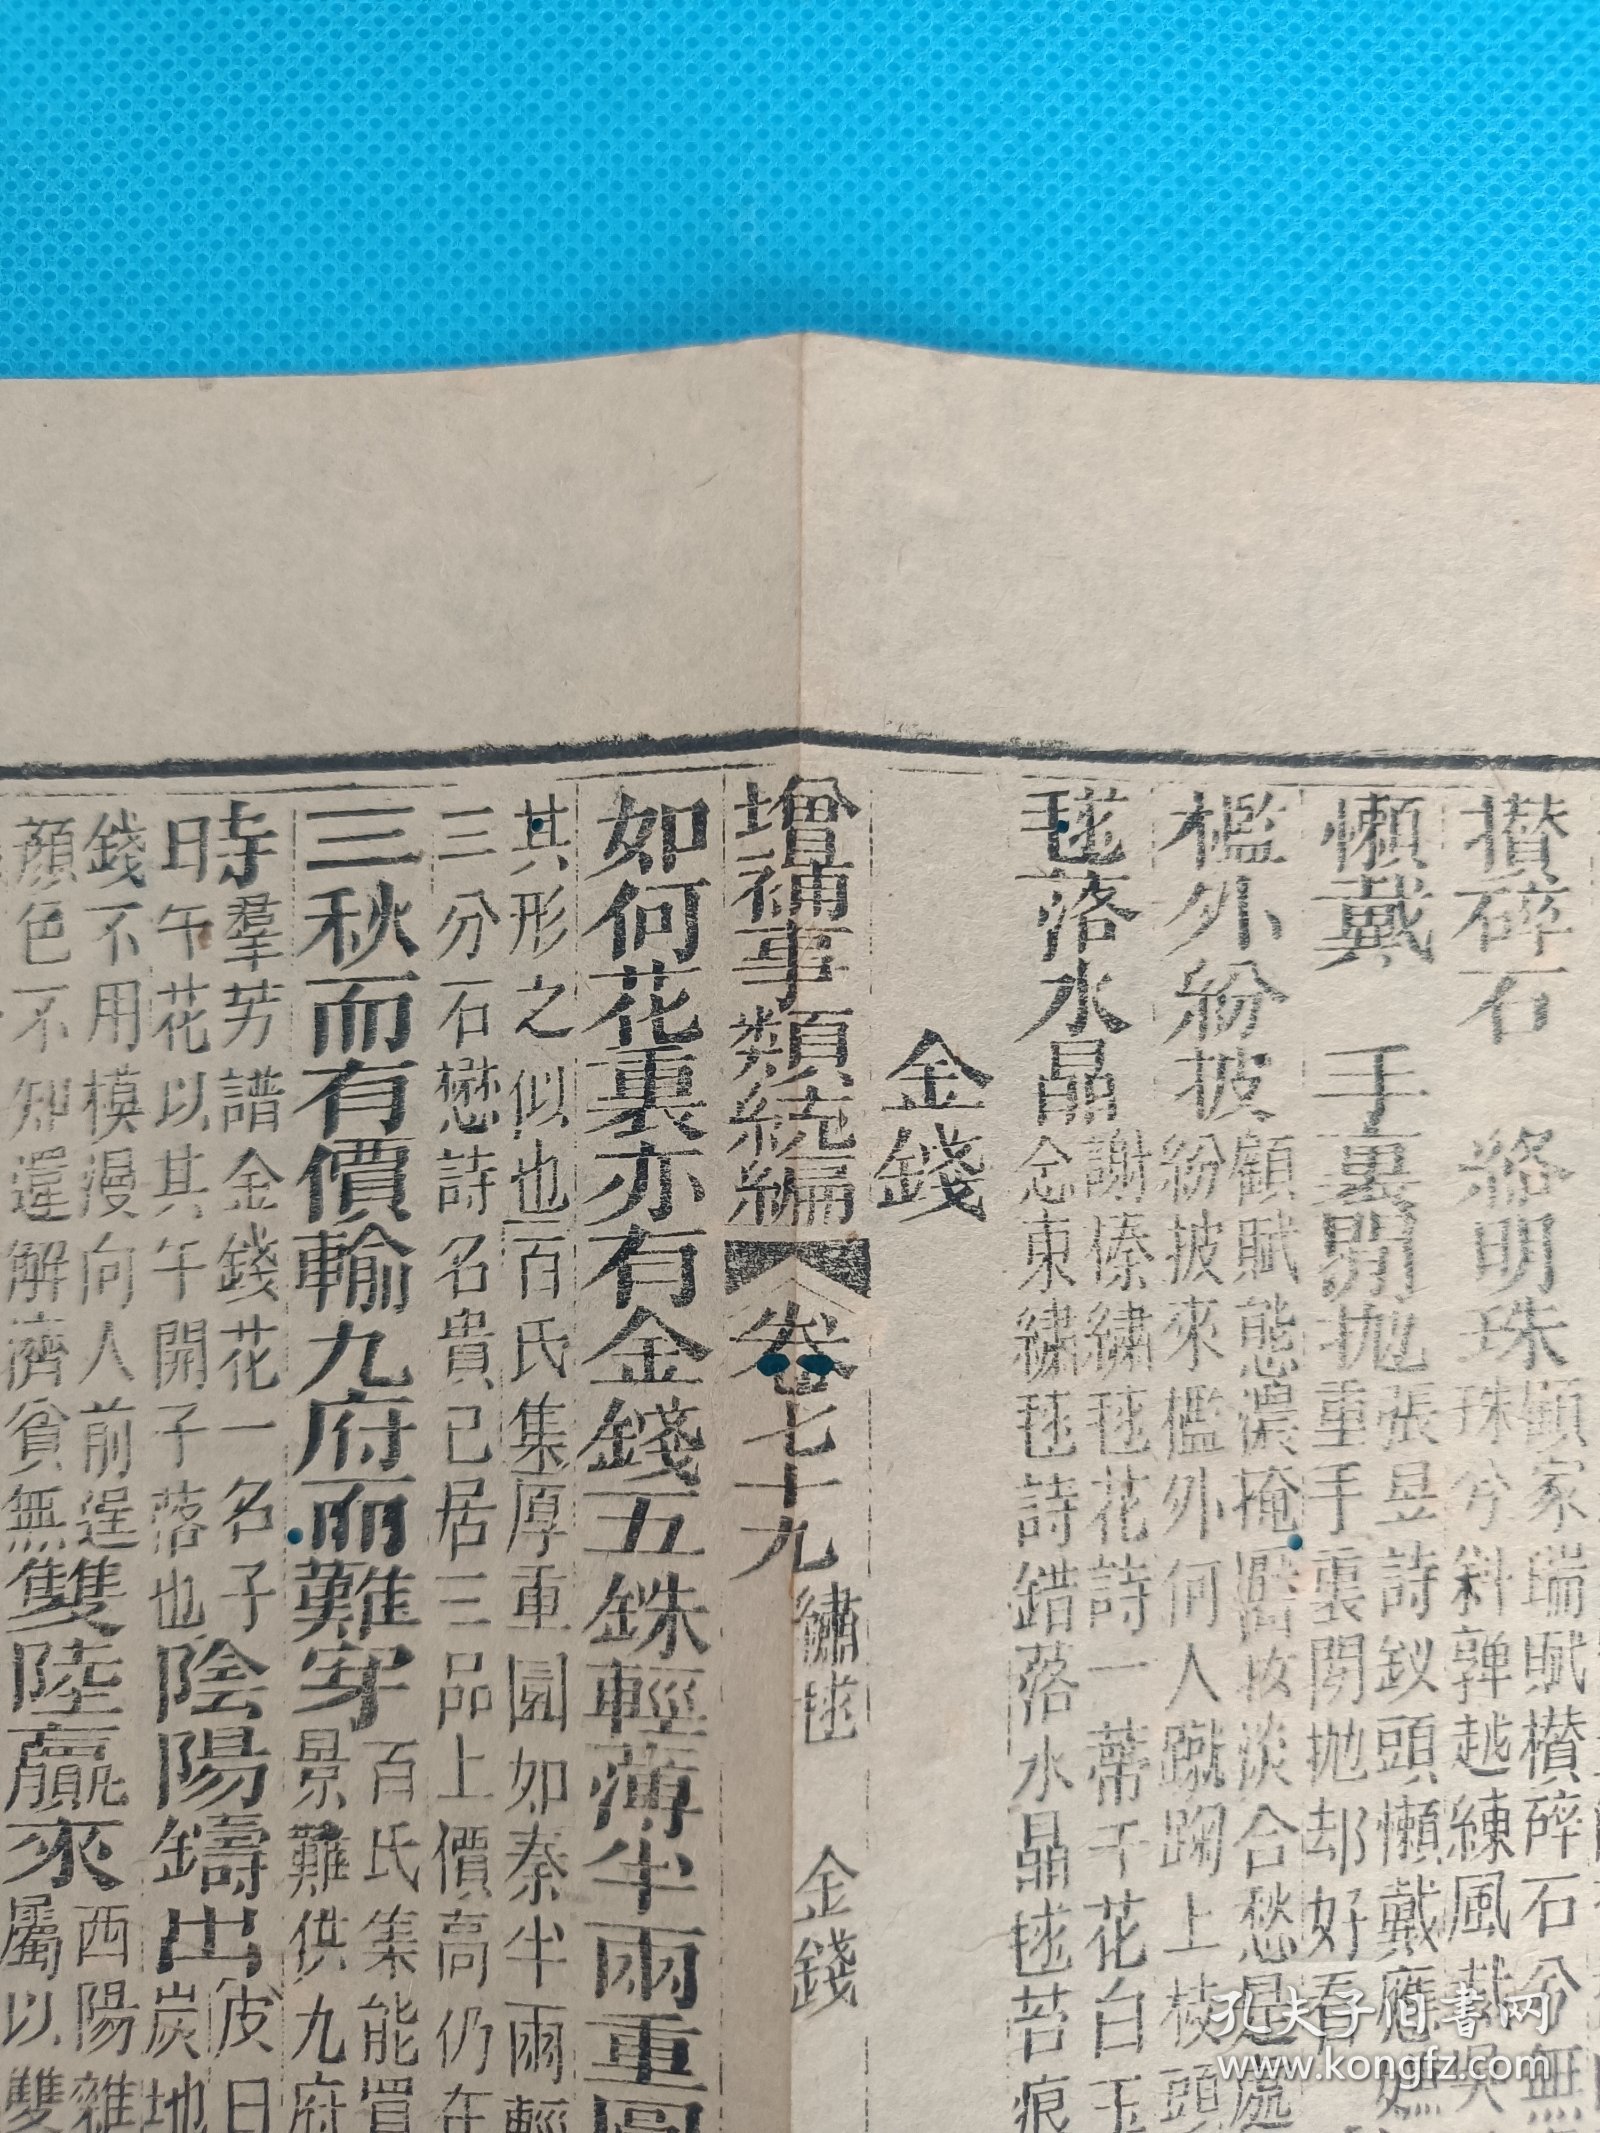 攅碎石　絡明珠
顧家瑞賦櫕碎石兮無
珠兮斜亸越練風
懶戴　手裏閒抛
張昱詩釵頭懶戴應
重手裏閒抛却好看
檻外紛披
顧賦態濃掩濕妝淡合愁是處
紛披來檻外何人蹴踘上枝頭
毬落水晶
謝傃繡毬花詩一蒂千花白玉
念東繡毬詩錯落水晶毬苔痕
金錢
增補事類統編
卷七十九
繡毬　金錢
如何花裏亦有金錢五銖輕薄半兩重圓
其形之似也百氏集厚重圓如秦半兩輕
三分石懋詩名貴已居三品上價高仍在
三秋而有價輸九府而難穿
百氏集能買
景難供九府
時羣芳譜金錢花一名子
日午花以其午開子落也
陰陽鑄出
皮日
炭地
錢不用模漫向人前逞
顔色不知還解濟貧無
雙陸贏來
西陽雜
屬以雙
孔夫子旧书网
www.kongfz.com